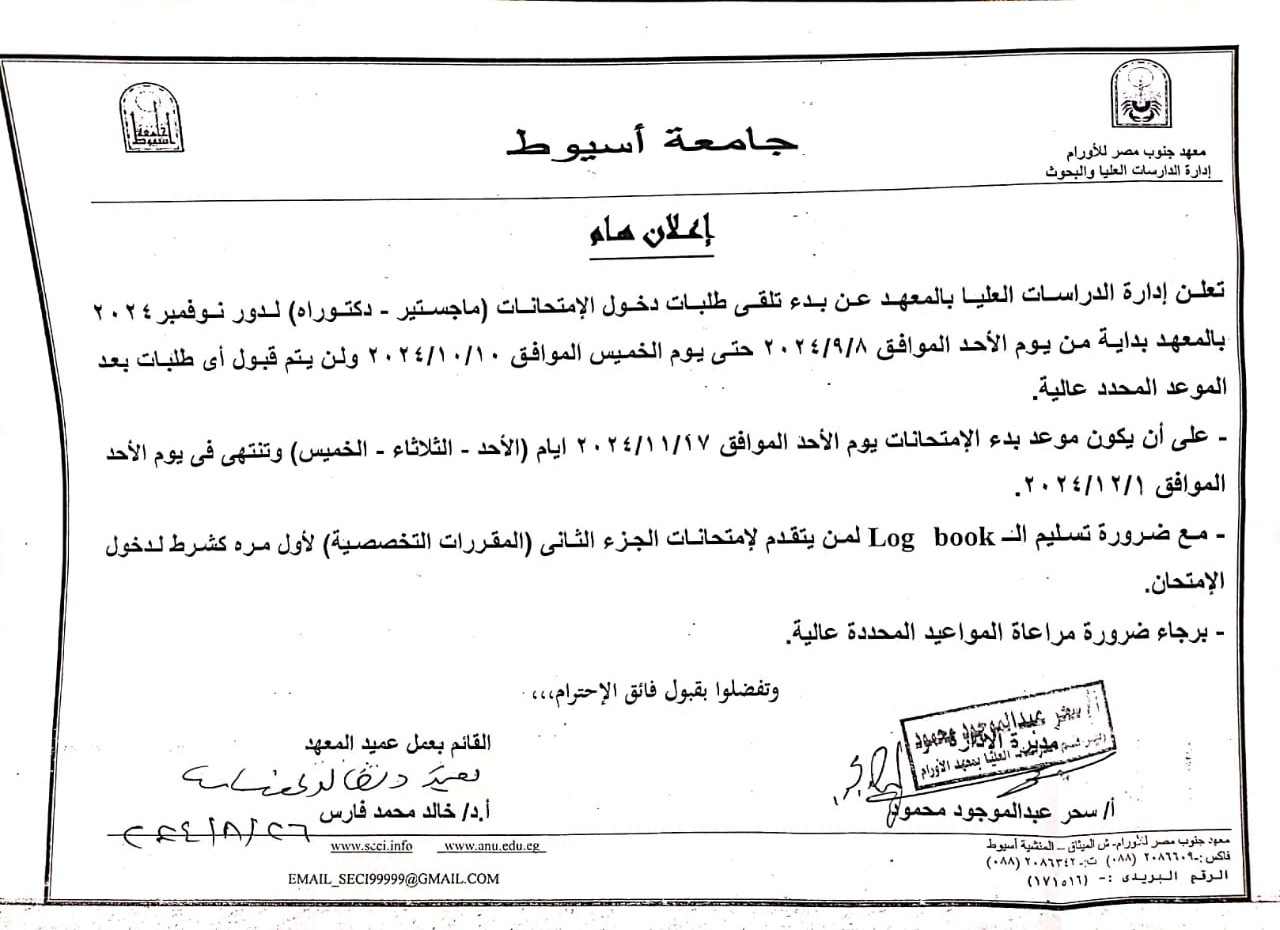 جامعة أسيوط
جامعة أسيوط
معهد جنوب مصر للأورام
إدارة الدارسات العليا والبحوث
إعلان هام
تعلن إدارة الدراسات العليا بالمعهد عن بدء تلقى طلبات دخول الإمتحانات (ماجستير - دكتوراه) لدور نوفمبر ٢٠٢٤
بالمعهد بداية من يوم الأحد الموافق ٢٠٢٤/٩/٨ حتى يوم الخميس الموافق ٢٠٢٤/١٠/١٠ ولن يتم قبول أى طلبات بعد
الموعد المحدد عالية.
- على أن يكون موعد بدء الإمتحانات يوم الأحد الموافق ٢٠٢٤/١١/١٧ ايام (الأحد - الثلاثاء - الخميس) وتنتهى فى يوم الأحد
الموافق ٢٠٢٤/١٢/١.
- مع ضرورة تسليم الـ Log book لمن يتقدم لإمتحانات الجزء الثانى (المقررات التخصصية) لأول مره كشرط لدخول
الإمتحان.
- برجاء ضرورة مراعاة المواعيد المحددة عالية.
وتفضلوا بقبول فائق الإحترام،،،
سحر عبدالموجود محمود
مديرة الإدارة
العليا بمعهد الأورام
أ/ سحر عبدالموجود محمود
القائم بعمل عميد المعهد
أ.د/ خالد محمد فارس
www.scci.info www.anu.edu.eg
EMAIL_SECI99999@GMAIL.COM
معهد جنوب مصر للأورام- ش الميثاق – المنشية أسيوط
فاكس :-٢٠٨٦٦٠٩ (٠٨٨) ت:-٢٠٨٦٣٤٢ (٠٨٨)
الرقم البريدى :- (١٧١٥١٦)